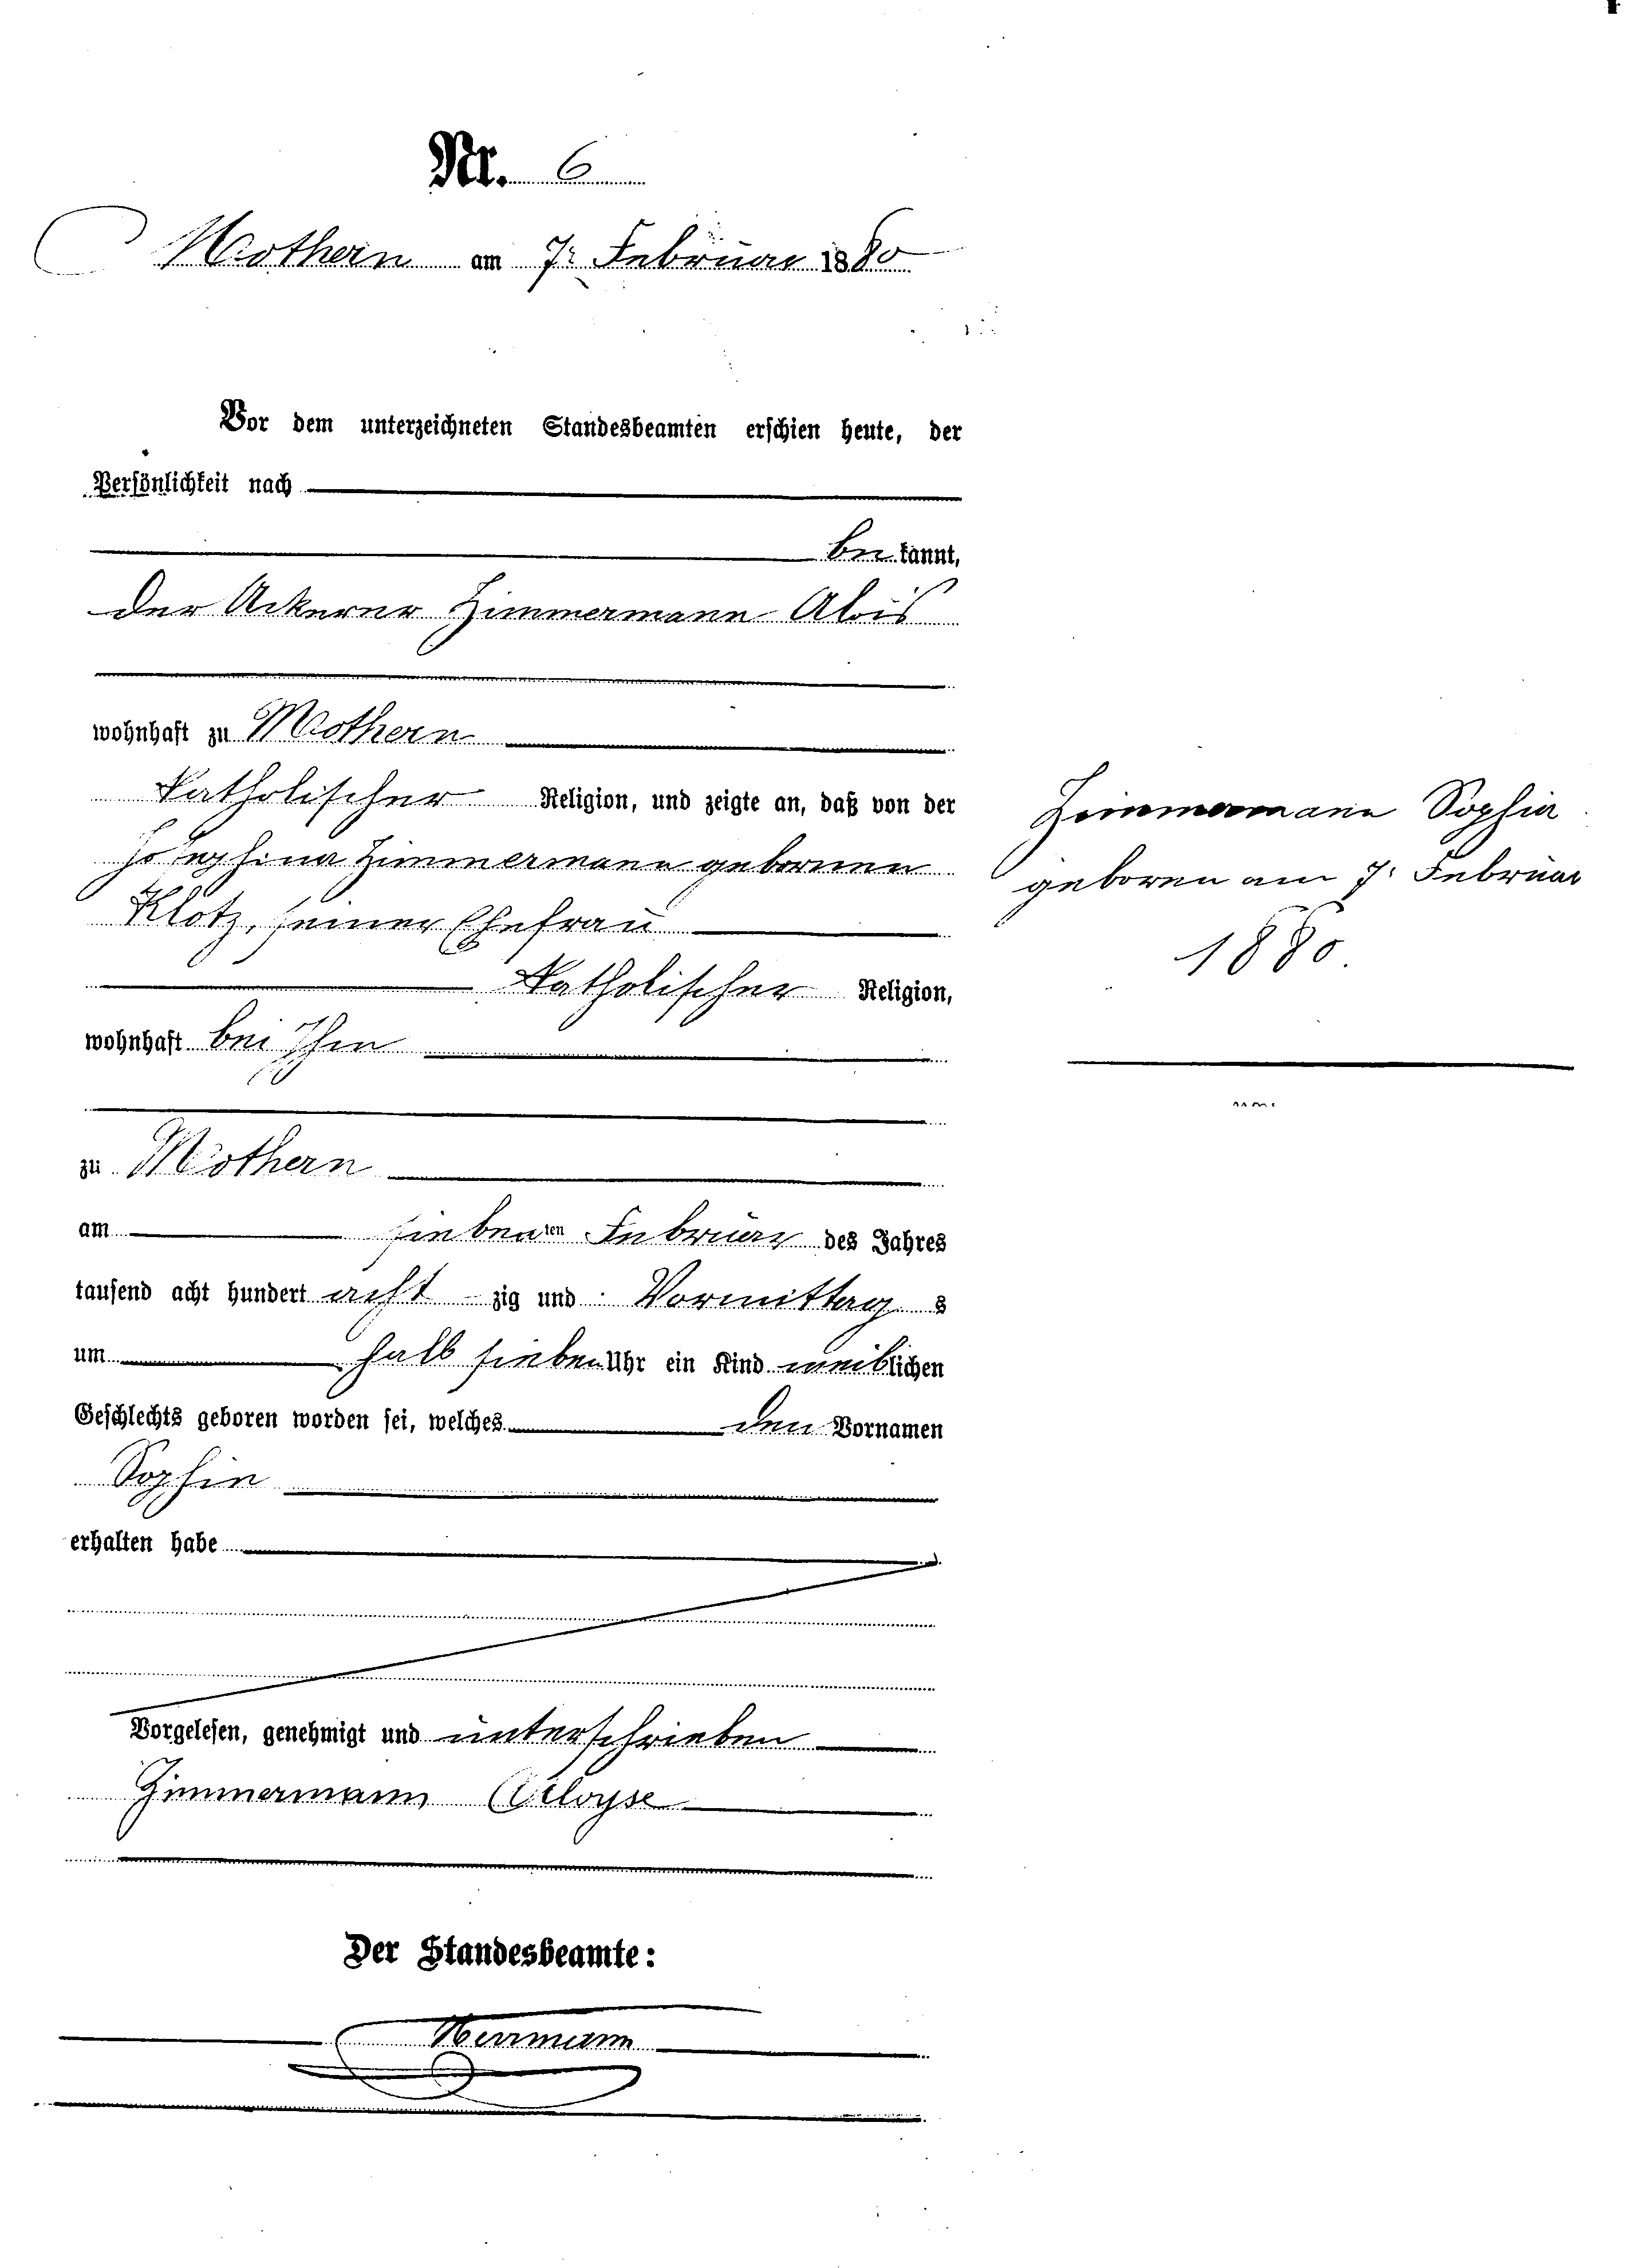 Nr. 6
Mothern am 7. Februar 1880
Vor dem unterzeichneten Standesbeamten erschien heute, der
Persönlichkeit nach
bekannt,
der Ackerer Zimmermann Alois
wohnhaft zu Mothern
katholischer Religion, und zeigte an, daß von der
Josephina Zimmermann gebornen
Klotz, seiner Ehefrau
katholischer Religion,
wohnhaft bei Ihm
zu Mothern
am siebenten Februar des Jahres
tausend acht hundert acht-zig und Vormittags
um halb sieben Uhr ein Kind weiblichen
Geschlechts geboren worden sei, welches den Vornamen
Sophia
erhalten habe
Vorgelesen, genehmigt und unterschrieben
Zimmermann Aloyse
Der Standesbeamte:
Herrmann
Zimmermann Sophia
geboren am 7. Februar
1880.